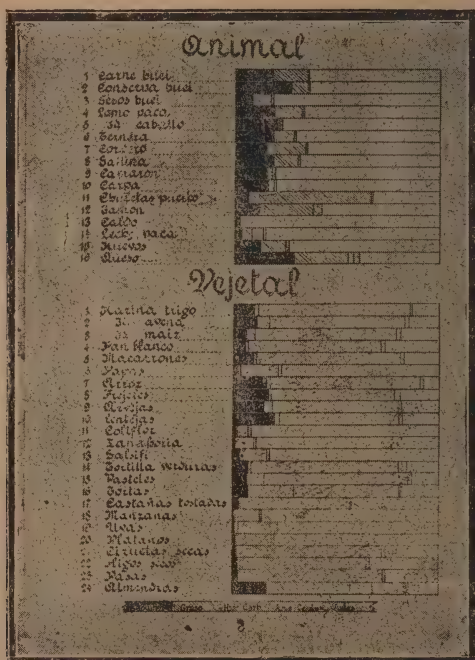 Animal
1 Carne buei
2 Conserva buei
3 Sesos buei
4 Lomo vaca
5 Id. caballo
6 Ternera
7 Cordero
8 Gallina
9 Camaron
10 Carpa
11 Chuletas puerco
12 Jamon
13 Caldo
14 Leche vaca
15 Huevos
16 Queso
Vejetal
1 Harina trigo
2 Id. avena
3 Id. maiz
4 Pan blanco
5 Macarrones
6 Papas
7 Arroz
8 Frejoles
9 Arvejas
10 Lentejas
11 Coliflor
12 Zanahoria
13 Salsifi
14 Tortilla verduras
15 Pasteles
16 Tortas
17 Castañas tostadas
18 Manzanas
19 Uvas
20 Platanos
21 Ciruelas secas
22 Higos secos
23 Pasas
24 Almendras
Grasa